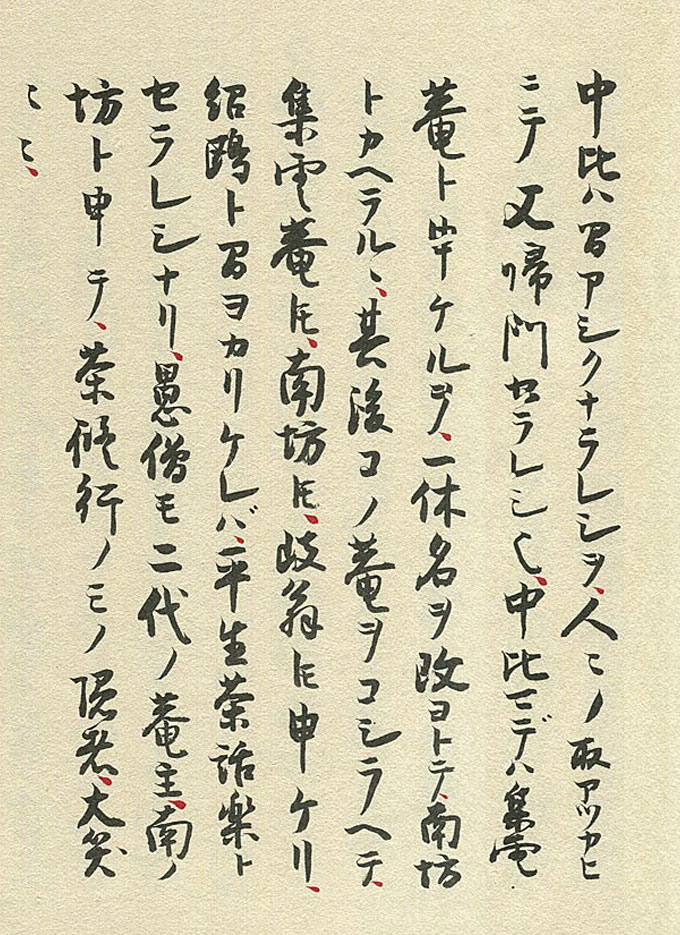 中比ハ間アシクナラレシヲ、人〻ノ取アツカヒ
ニテ又帰門セラレシ也、中比マデハ集雲
菴ト申ケルヲ、一休名ヲ改ヨトテ、南坊
トカヘラルヽ、其後コノ菴ヲコシラヘテ、
集雲菴𪜈、南坊𪜈、岐翁𪜈申ケリ、
紹鴎ト間ヨカリケレバ、平生茶話楽ト
セラレシナリ、愚僧モ二代ノ菴主、南ノ
坊ト申テ、茶修行ノミノ隠者、大笑
〻〻、